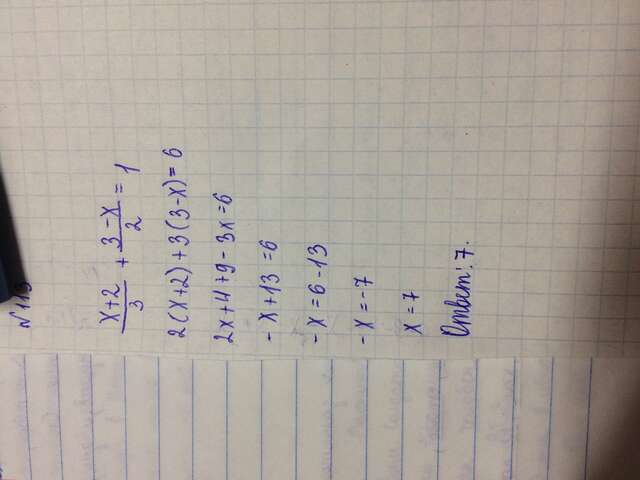 N 113
(x+2)/3 + (3-x)/2 = 1
2(x+2)+3(3-x)=6
2x+4+9-3x=6
-x+13=6
-x=6-13
-x=-7
x=7
Ответ: 7.